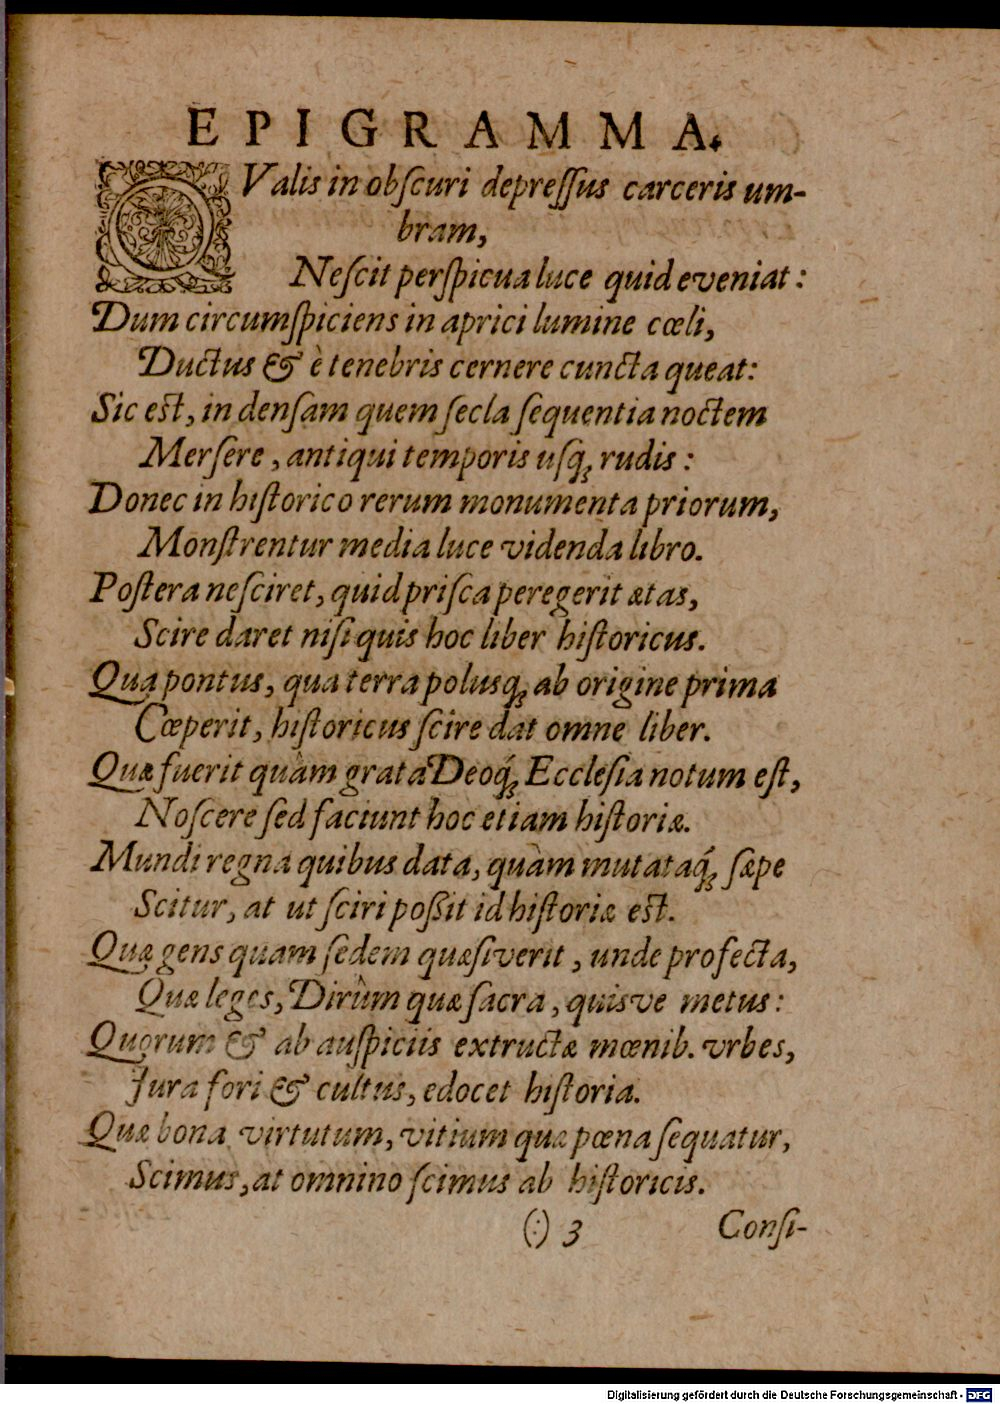 EPIGRAMMA.
QValis in obſcuri depreſſus carceris um-
bram,
Neſcit perſpicua luce quid eveniat:
Dum circumſpiciens in aprici lumine cœli,
Ductus & è tenebris cernere cuncta queat:
Sic eſt, in denſam quem ſecla ſequentia noctem
Merſere, antiqui temporis uſq́; rudis:
Donec in hiſtorico rerum monumenta priorum,
Monſtrentur media luce videnda libro.
Poſtera neſciret, quid priſca peregerit ætas,
Scire daret niſi quis hoc liber hiſtoricus.
Qua pontus, qua terra polusq; ab origine prima
Cœperit, hiſtoricus ſcire dat omne liber.
Quæ fuerit quàm grata Deoq́; Eccleſia notum eſt,
Noſcere ſed faciunt hoc etiam hiſtoriæ.
Mundi regna quibus data, quàm mutataq́; ſæpe
Scitur, at ut ſciri poßit id hiſtoriæ eſt.
Quæ gens quam ſedem quæſiverit, unde profecta,
Quæ leges, Dirûm quæ ſacra, quisve metus:
Quorum & ab auſpiciis extructæ mœnib. vrbes,
Jura fori & cultus, edocet hiſtoria.
Quæ bona virtutum, vitium quæ pœna ſequatur,
Scimus, at omnino ſcimus ab hiſtoricis.
(:) 3 Conſi-
Digitalisierung gefördert durch die Deutsche Forschungsgemeinschaft - DFG